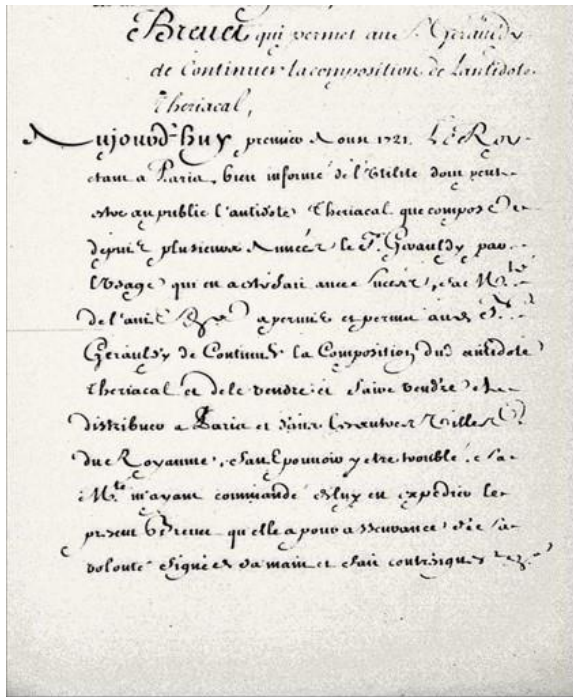 Brevet qui permet au S.r Geraudly
de Continuer la composition de lantidote
Theriacal,
Aujourd'huy premier Aoust 1721. Le Roy
estant a Paris, bien informé de l'Utilité dont peut
estre au public l'antidote Theriacal que compose
depuis plusieurs Années le S.r Gerauldy par
l'Usage qui en a esté fait avec succès, sa M.té
de l'avis a permis et permet aud. S.r
Gerauldy de Continuer la Composition dud. antidote
Theriacal et de le vendre et faire vendre et
distribuer a Paris et dans les autres Villes
du Royaume, sans pouvoir y etre troublé, sa
M.té m'ayant commandé de luy en expedier le
present Brevet qu'elle a pour asseurance de sa
volonté signé de sa main et fait contresigner